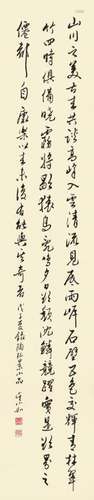 山川之美古來共談高峰入雲清流見底兩岸石壁五色交輝青林翠
竹四時俱備曉霧將歇猿鳥亂鳴夕日欲頹沈鱗競躍實是欲界之
僊都自康樂以來未復有能與其奇者戊子夏錄陶弘景小品